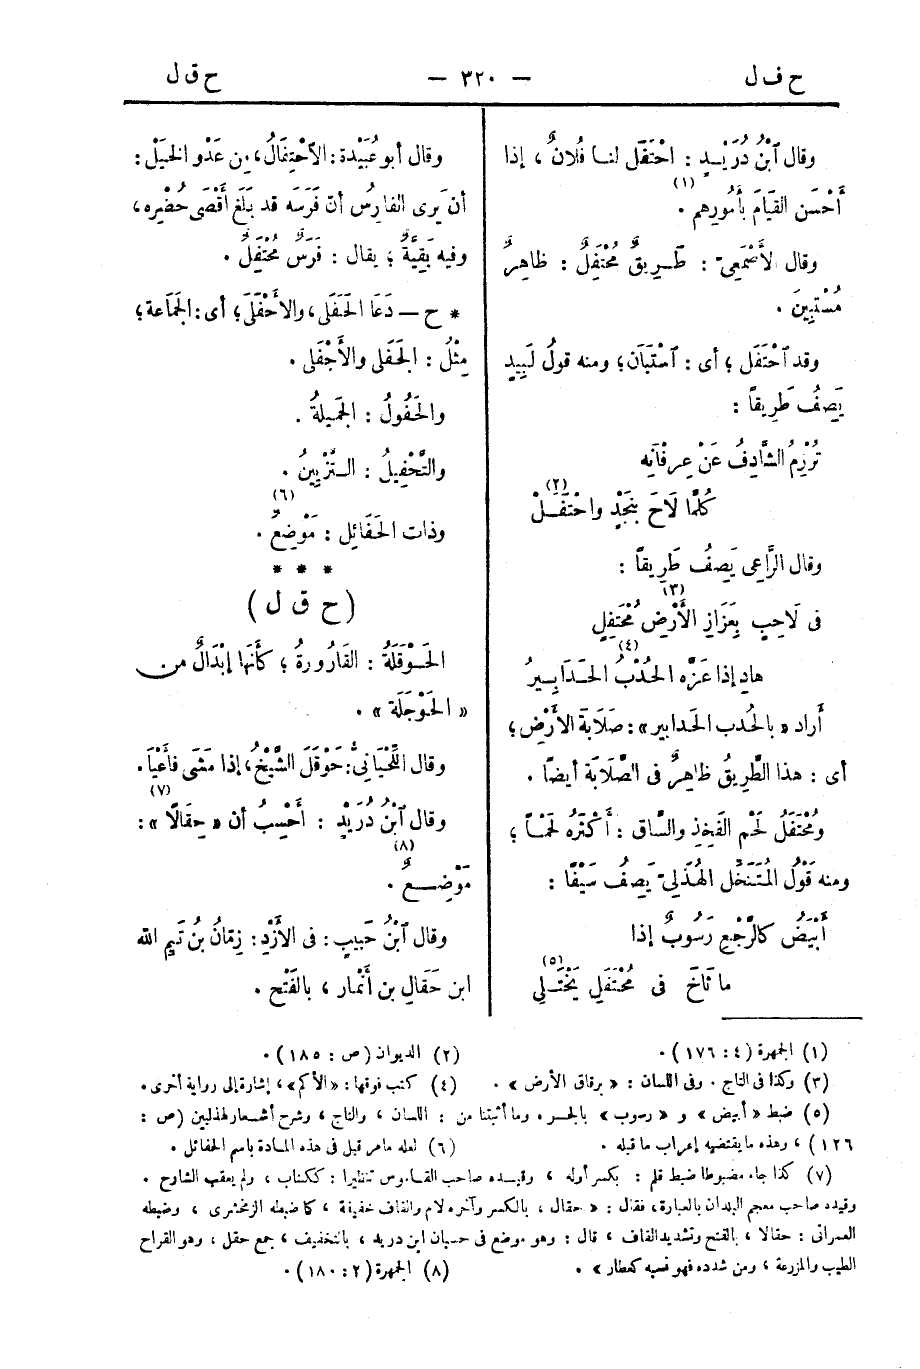 ح ف ل — ٣٢٠ — ح ق ل
وقال ٱبْنُ دُرَيْدٍ : احْتَفَل لنا فُلانٌ ، إذا
أَحْسَن القِيَامَ بأُمُورِهم (١) .
وقال لأَصْمَعِىّ : طَرِيقٌ مُحْتَفِلٌ : ظاهِرٌ
مُسْتَبِينَ .
وقد ٱحْتَفَل ؛ أى : ٱسْتَبَان ؛ ومنه قولُ لَبِيدٍ
يَصِفُ طَرِيقاً :
تُرْزِمُ الشَّارِفُ عَنْ عِرفانِهِ
كُلَّمَا لَاحَ بنَجْدٍ واحْتَفَلْ (٢)
وقال الرَّاعِى يَصِفُ طَرِيقاً :
فى لَاحِبٍ بِعَزَازِ الأَرْضِ مُحْتَفِلٍ (٣)
هادٍ إذا عَزَّه الحُدْبُ الحَدَابِيرُ (٤)
أَراد « بالحُدب الحَدابير » : صَلَابَة الأرْضِ ؛
أى : هذا الطَّرِيقُ ظاهِرٌ فى الصَّلَابَة أيضاً .
ومُحْتَفَلُ لَحْمِ الفَخِذِ والسَّاق : أَكْثَرُه لَحْماً ؛
ومنه قَوْلُ المُتَنَخِّل الهُذَلِىّ يَصِفُ سَيْفًا :
أَبْيَضُ كالرَّجْعِ رَسُوبٌ إذا
ما ثَاخَ فى مُحْتَفَلٍ يَخْتَلِى (٥)
وقال أبو عُبَيْدة : الاحْتِفَالُ ، من عَدْو الخَيْل :
أن يَرى الفارِسُ أنّ فَرَسَه قد بَلَغ أَقْصَى حُضْرِه ،
وفيه بَقِيَّةٌ ؛ يقال : فَرَسٌ مُحْتَفِلٌ .
* ح — دَعَا الحَفَلَى ، والأحْفَلَى ؛ أى : الجَمَاعة ؛
مِثْلُ : الجَفَلى والأَجْفَلى .
والحَفُولُ : الجَمِيلةُ .
والتَّحْفِيلُ : التَّزْيِينُ .
وذات الحَفَائِل : مَوْضِعٌ (٦) .
* * *
( ح ق ل )
الحَوْقَلَةُ : القَارُورةُ ؛ كأَنَّها إبْدَالٌ من
« الحَوْجَلَة » .
وقال اللِّحْيَانِىُّ : حَوْقَلَ الشَّيْخُ ، إذا مَشَى فأَعْيَا .
وقال ٱبْنُ دُرَيْدٍ : أَحْسِبُ أن « حِقَالًا » (٧) :
مَوْضِعٌ (٨) .
وقال ٱبْنُ حَبِيبٍ : فى الأَزْدِ : زِمَّانُ بنُ تَيمِ الله
ابن حَقَالِ بن أَنْمار ، بالفَتْح .
(١) الجمهرة (٤ : ١٧٦) . (٢) الديوان (ص : ١٨٥) .
(٣) وكذا فى التاج . وفى اللسان : « برقاق الأرض » . (٤) كتب فوقها : « الأكم » ، إشارة إلى رواية أخرى .
(٥) ضبط « أبيض » و « رسوب » بالجر . وما أثبتنا من : اللسان ، والتاج ، وشرح أشعار لهذليين (ص :
١٢٦) ، وهذه ما يقتضيه إعراب ما قبله . (٦) لعله ما مر قبل فى هذه المادة باسم الحفائل .
(٧) كذا جاء مضبوطا ضبط قلم : بكسر أوله ، وقيده صاحب القاموس تنظيرا : ككتاب ، ولم يعقب الشارح .
وقيده صاحب معجم البلدان بالعبارة ، فقال : « حقال ، بالكسر وآخره لام والقاف خفيفة ، كما ضبطه الزمخشرى ، وضبطه
العمرانى : حقالا ، بالفتح وتشديد القاف ، قال : وهو موضع فى حسبان ابن دريد ، بالتخفيف ، جمع حقل ، وهو القراح
الطيب والمزرعة ، ومن شدده فهو نسبه كعطار » . (٨) الجمهرة (٢ : ١٨٠) .